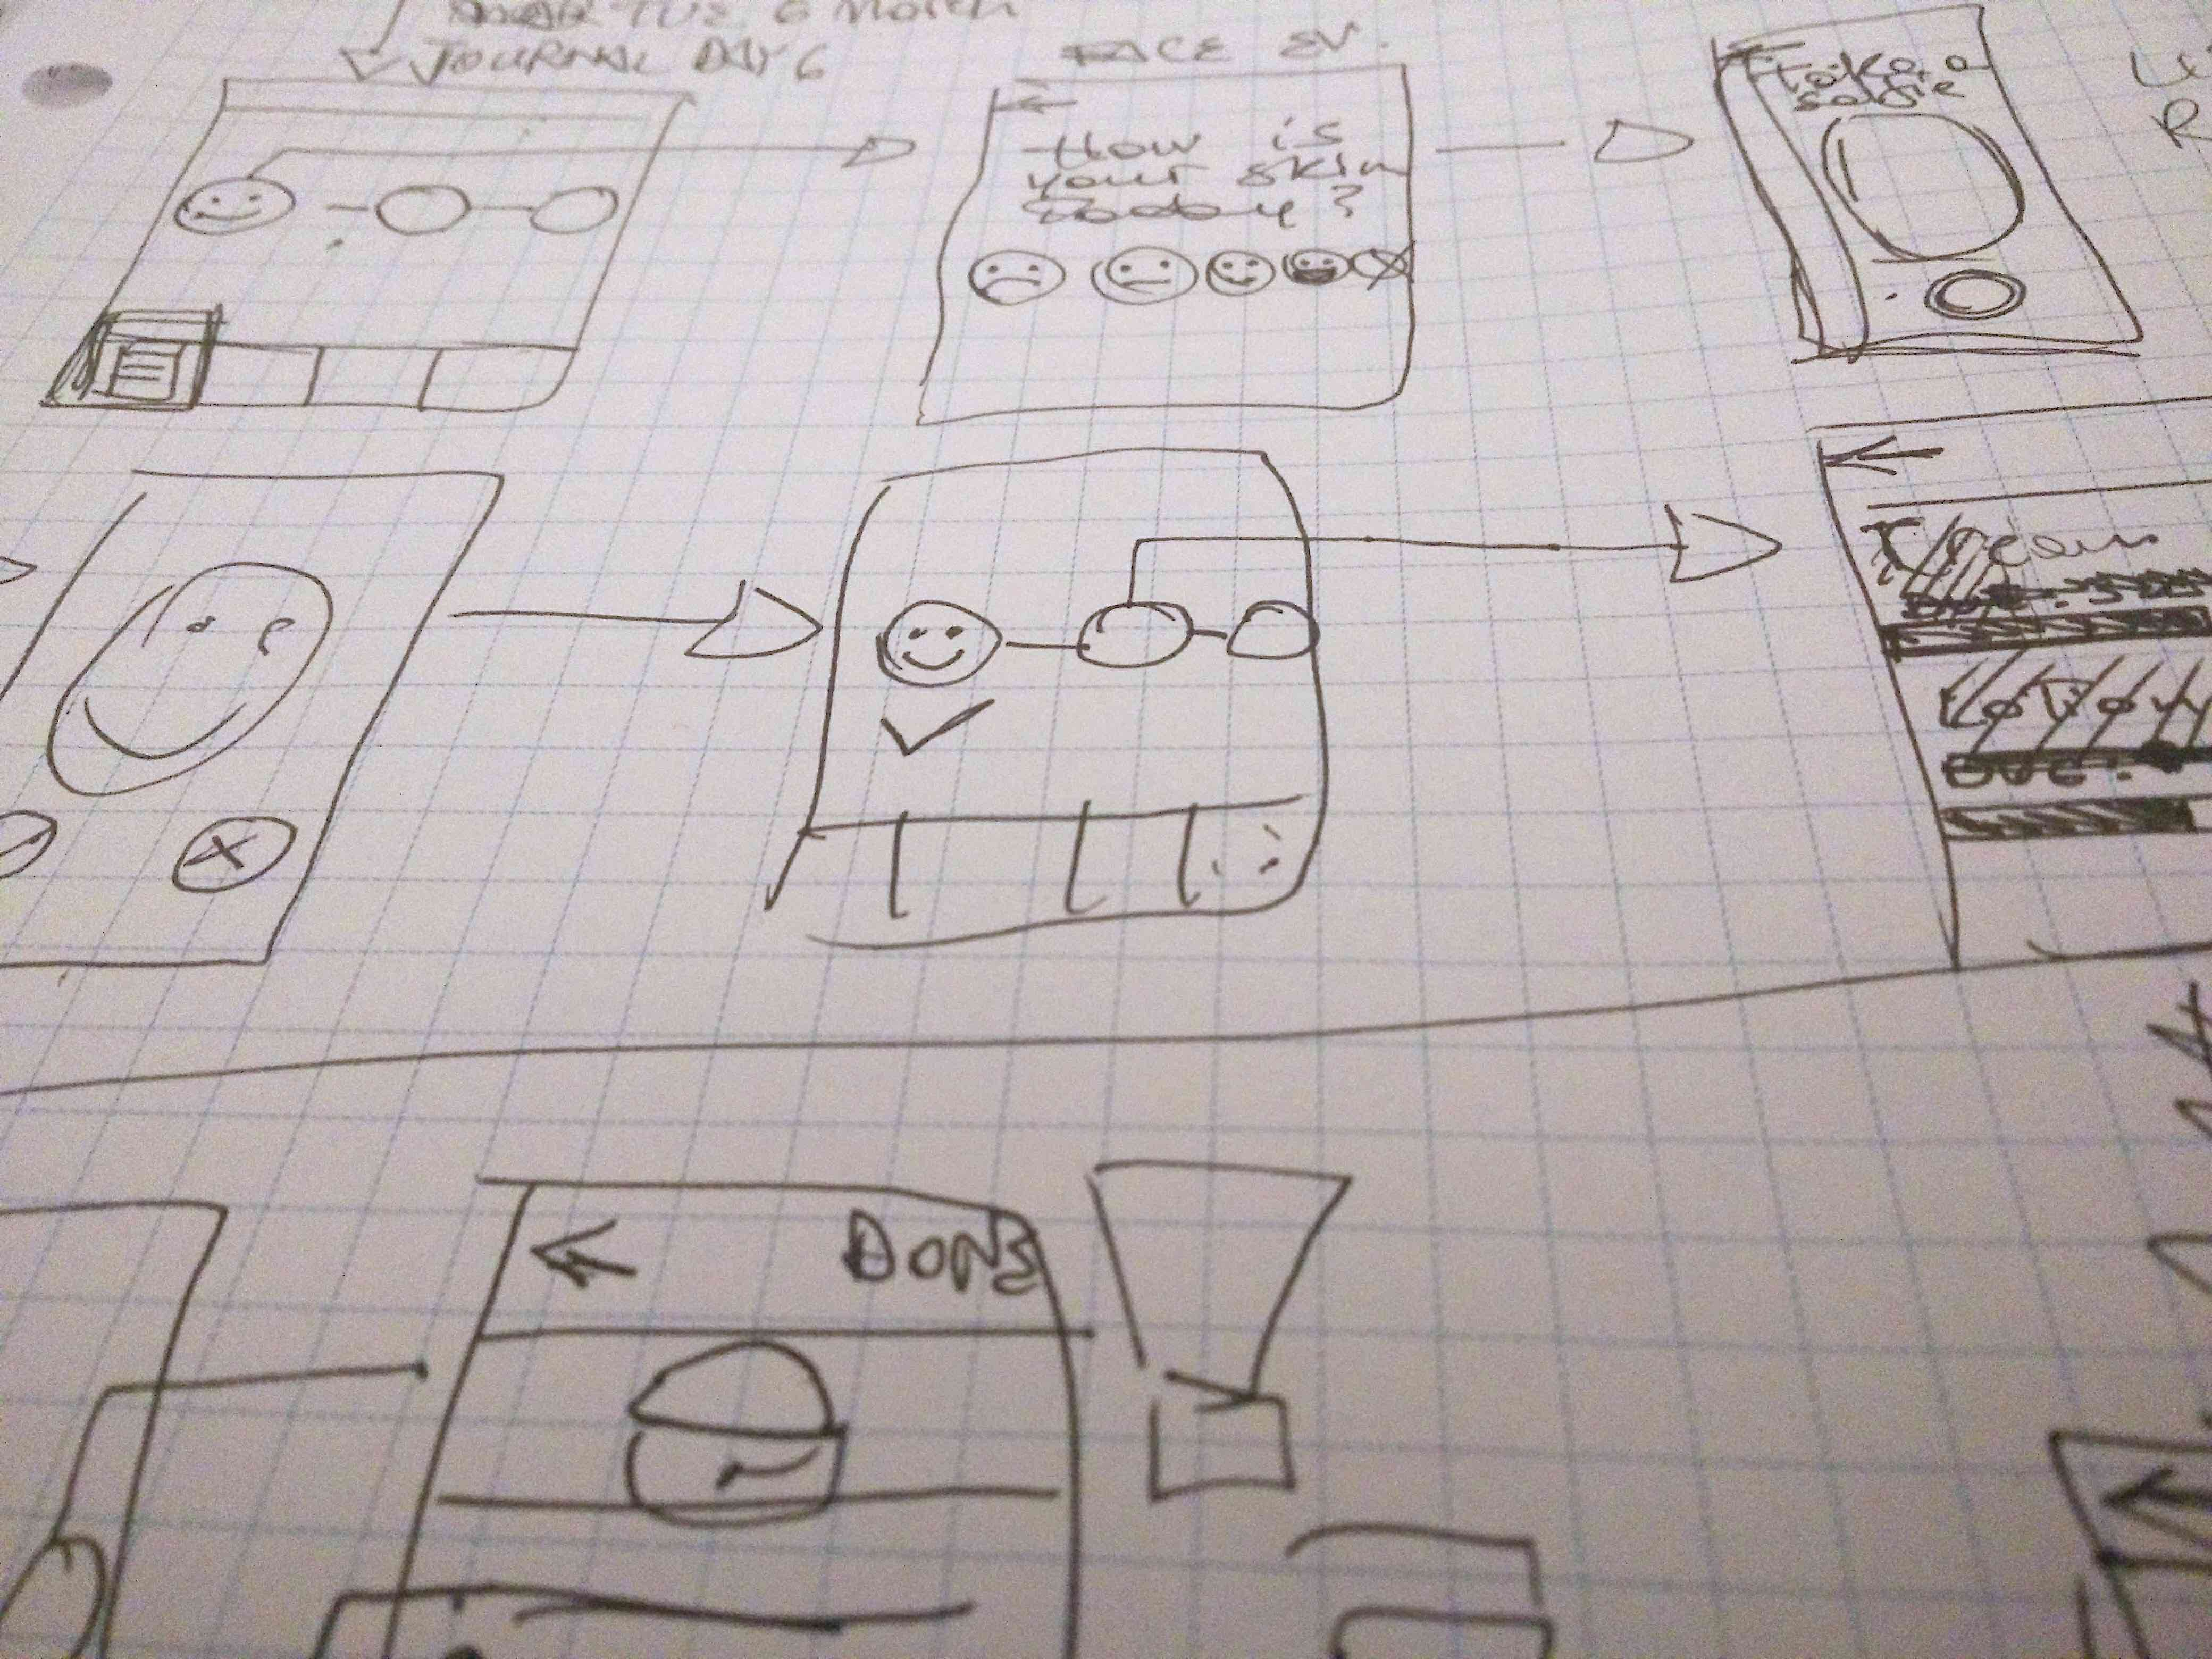 TUE 6 March
JOURNAL DAY 6
FACE EV.
How is
your skin
today?
take a
selfie
Cream
Lotion
DONE